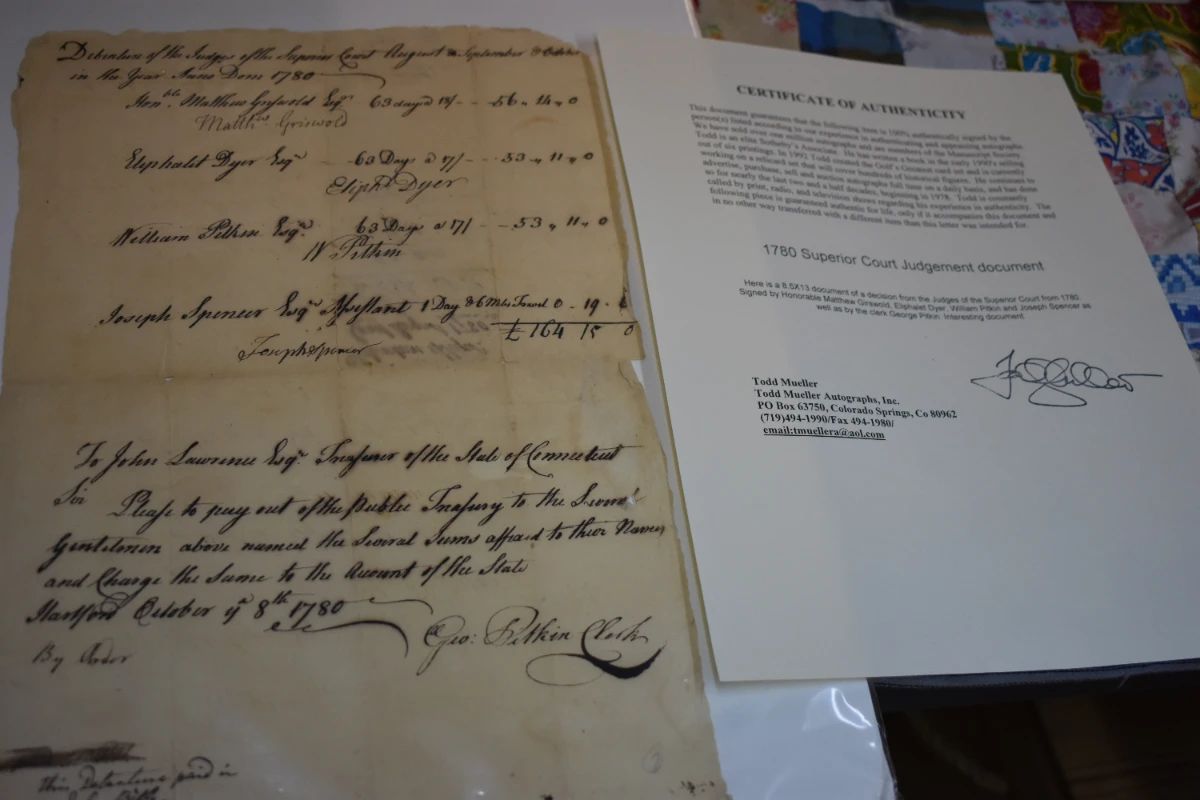 Debenture of the Judges of the Superior Court August & September & October
in the Year Anno Dom 1780
Honble. Matthew Griswold Esqr. 63 days a 18/ - - 56 „ 14 „ 0
Matthw Griswold
Eliphalet Dyer Esqr - 63 Days a 17/ - - 53 „ 11 „ 0
Elipht Dyer
William Pitkin Esqr. 63 Days a 17/ - - 53 „ 11 „ 0
W Pitkin
Joseph Spencer Esqr Assistant 1 Day & 6 Miles Travel 0 - 19 -
£ 164 15 0
Joseph Spencer
To John Lawrence Esqr. Treasurer of the State of Connecticut
Sir Please to pay out of the Public Treasury to the Several
Gentlemen above named the Several Sums affixed to their Names
and Charge the Same to the Account of the State
Hartford October ye 8th 1780
Geo: Pitkin Clerk
By Order
this Debenture paid in
CERTIFICATE OF AUTHENTICITY
This document guarantees that the following item is 100% authentically signed by the
person(s) listed according to our experience in authenticating and appraising autographs.
We have sold over one million autographs and are members of the Manuscript Society.
Todd is an elite Sotheby's Association. He has written a book in the early 1990's selling
out of six printings. In 1992 Todd created the Gold's Greatest card set and is currently
working on a relicard set that will cover hundreds of historical figures. He continues to
advertise, purchase, sell and auction autographs full time on a daily basis, and has done
so for nearly the last two and a half decades, beginning in 1978. Todd is constantly
called by print, radio, and television shows regarding his experience in authenticity. The
following piece is guaranteed authentic for life, only if it accompanies this document and
in no other way transferred with a different item than this letter was intended for.
1780 Superior Court Judgement document
Here is a 8.5X13 document of a decision from the Judges of the Superior Court from 1780.
Signed by Honorable Matthew Girswold, Eliphalet Dyer, William Pitkin and Joseph Spencer as
well as by the clerk George Pitkin. Interesting document.
Todd Mueller
Todd Mueller Autographs, Inc.
PO Box 63750, Colorado Springs, Co 80962
(719)494-1990/Fax 494-1980/
email:tmuellera@aol.com